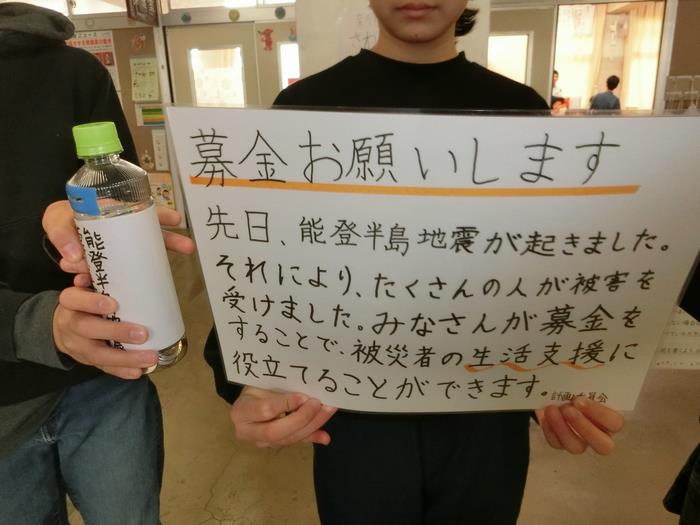 募金お願いします
先日、能登半島地震が起きました。
それにより、たくさんの人が被害を
受けました。みなさんが募金を
することで、被災者の生活支援に
役立てることができます。
計画委員会
能登半島